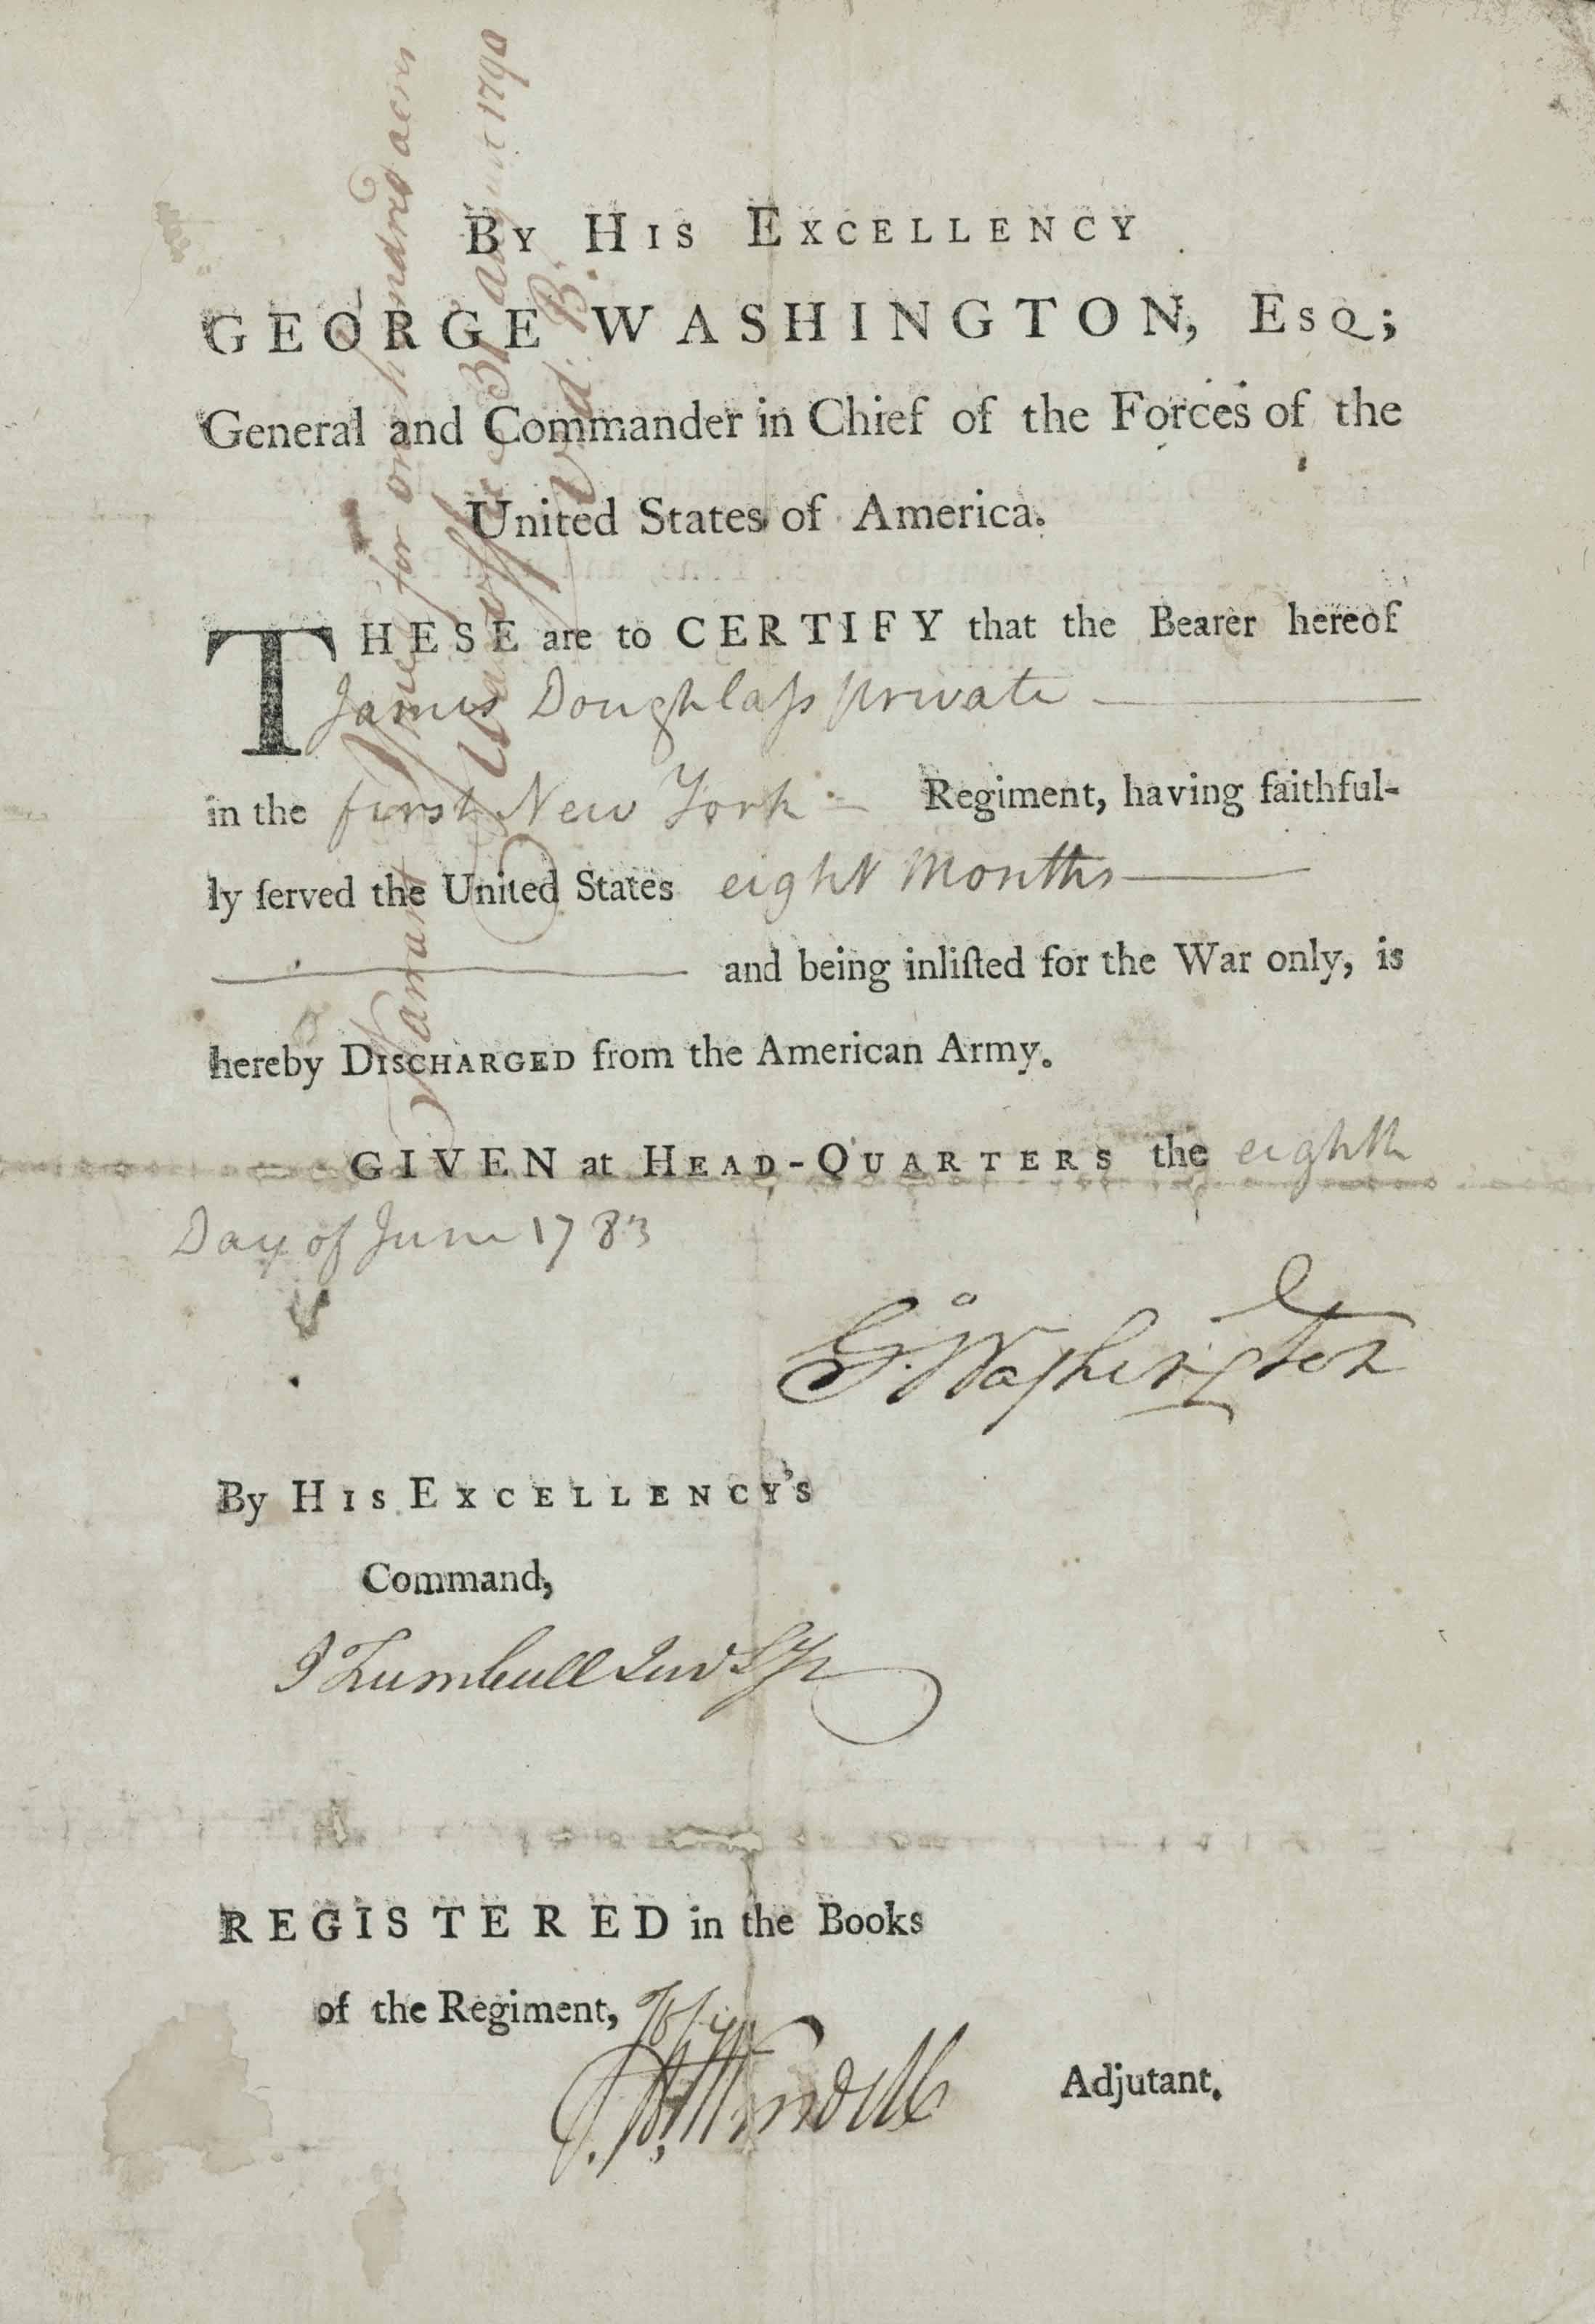 BY HIS EXCELLENCY
GEORGE WASHINGTON, ESQ;
General and Commander in Chief of the Forces of the
United States of America.
THESE are to CERTIFY that the Bearer hereof
James Doughlaſs private
in the first New York Regiment, having faithful-
ly ſerved the United States eight Months
and being inliſted for the War only, is
hereby DISCHARGED from the American Army.
GIVEN at HEAD-QUARTERS the eighth
Day of June 1783
Go: Waſhington
By HIS EXCELLENCY'S
Command,
J Trumbull Jun Sy
REGISTERED in the Books
of the Regiment,
J. H. Wendell Adjutant.
Warrant for on hundred acers
31 august 1790
W. d. B.